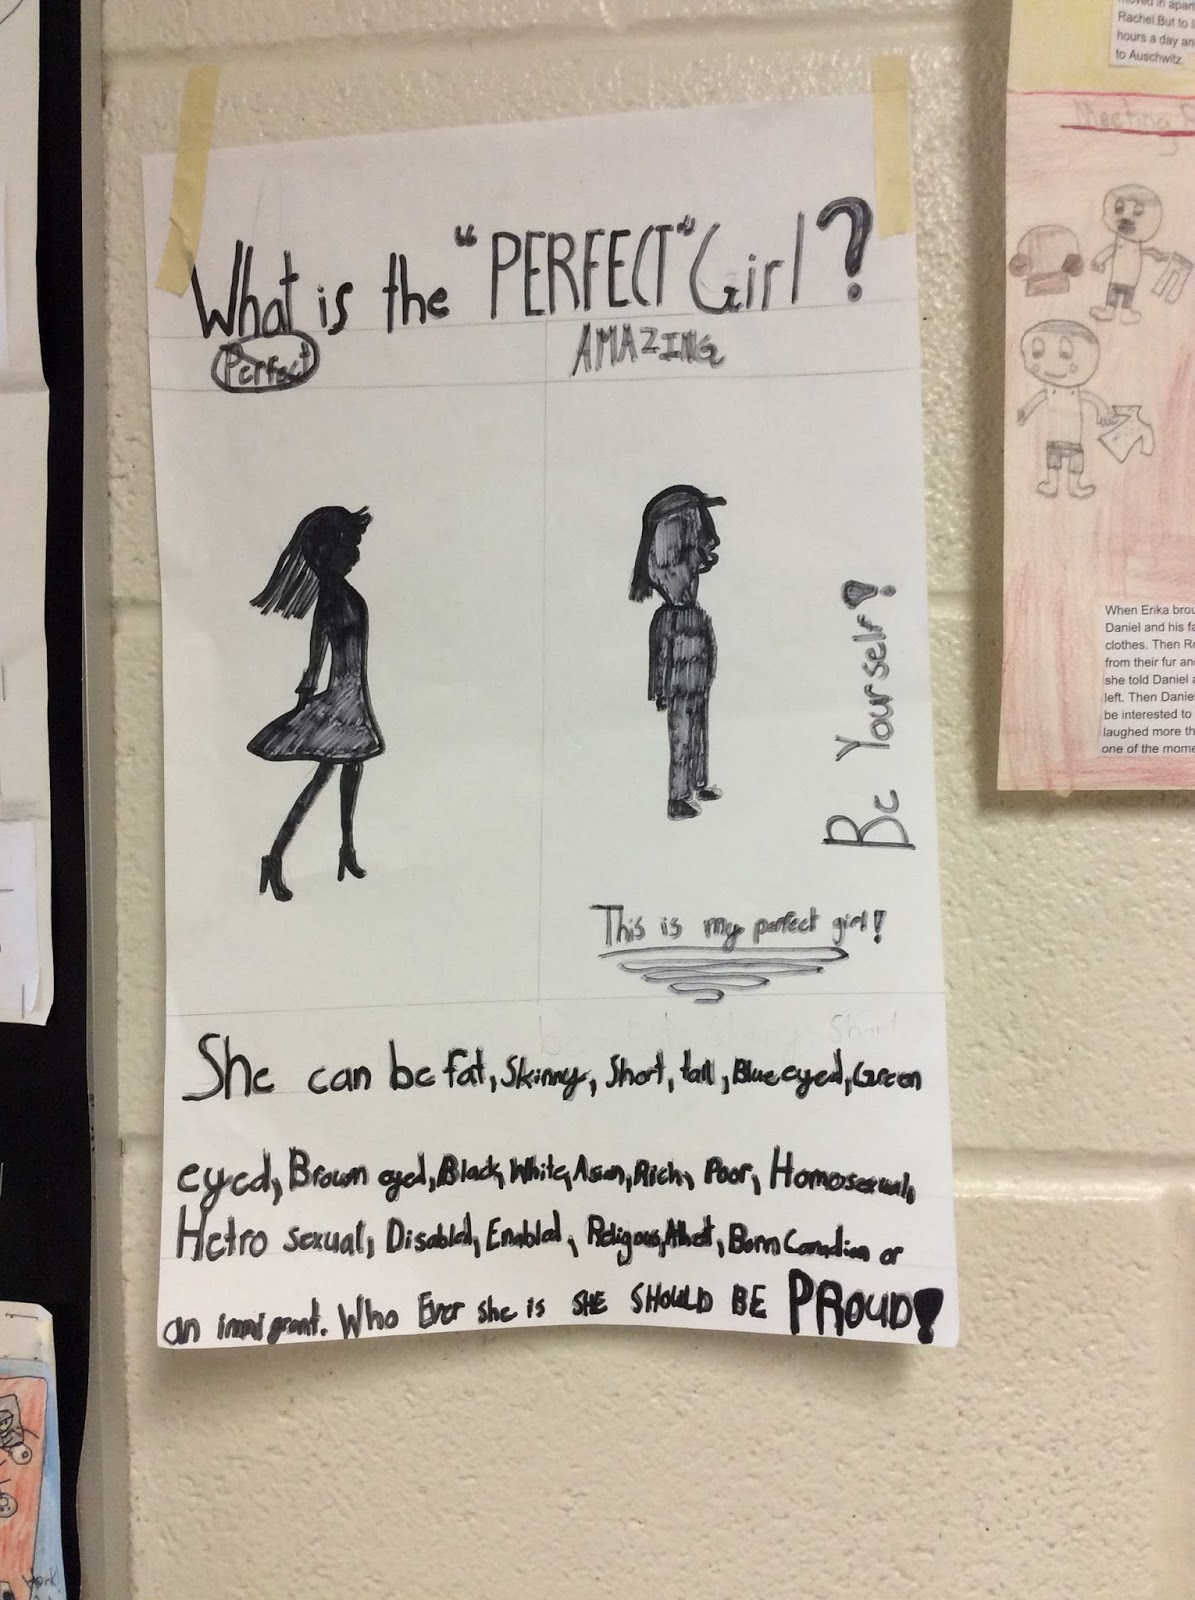 What is the "PERFECT" Girl?
Perfect
AMAZING
Be Yourself!
This is my perfect girl!
She can be fat, Skinny, Short, tall, Blue eyed, Green
eyed, Brown eyed, Black, White, Asian, Rich, Poor, Homosexual,
Hetro sexual, Disabled, Enabled, Religous, Athest, Born Canadian or
an immigrant. Who Ever she is SHE SHOULD BE PROUD!
moved in apart
Rachel. But to l
hours a day an
to Auschwitz.
Meeting
When Erika brou
Daniel and his fa
clothes. Then R
from their fur an
she told Daniel a
left. Then Danie
be interested to
laughed more th
one of the mome